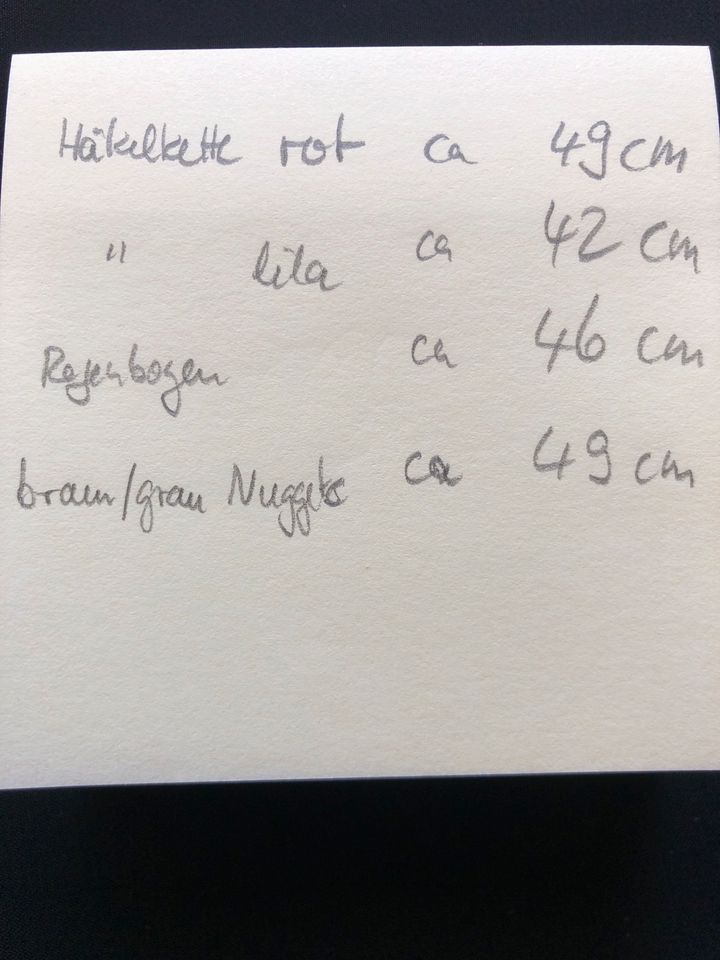 Häkelkette rot ca 49 cm
" lila ca 42 cm
Regenbogen ca 46 cm
braun/grau Nuggets ca 49 cm